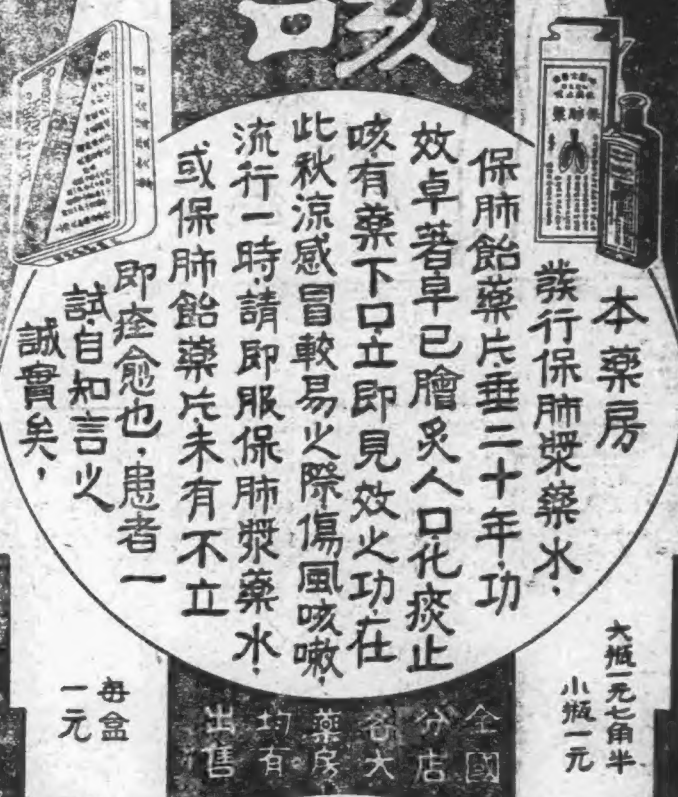 咳
本藥房
發行保肺漿藥水，
保肺飴藥片，垂二十年，功
效卓著早已膾炙人口化痰止
咳，有藥下口，立即見效之功，在
此秋涼感冒較易之際，傷風咳嗽，
流行一時，請即服保肺漿藥水，
或保肺飴藥片，未有不立
即痊愈也，患者一
試，自知言之
誠實矣，
大瓶一元七角半
小瓶一元
全國
分店
各大
藥房
均有
出售
每盒
一元